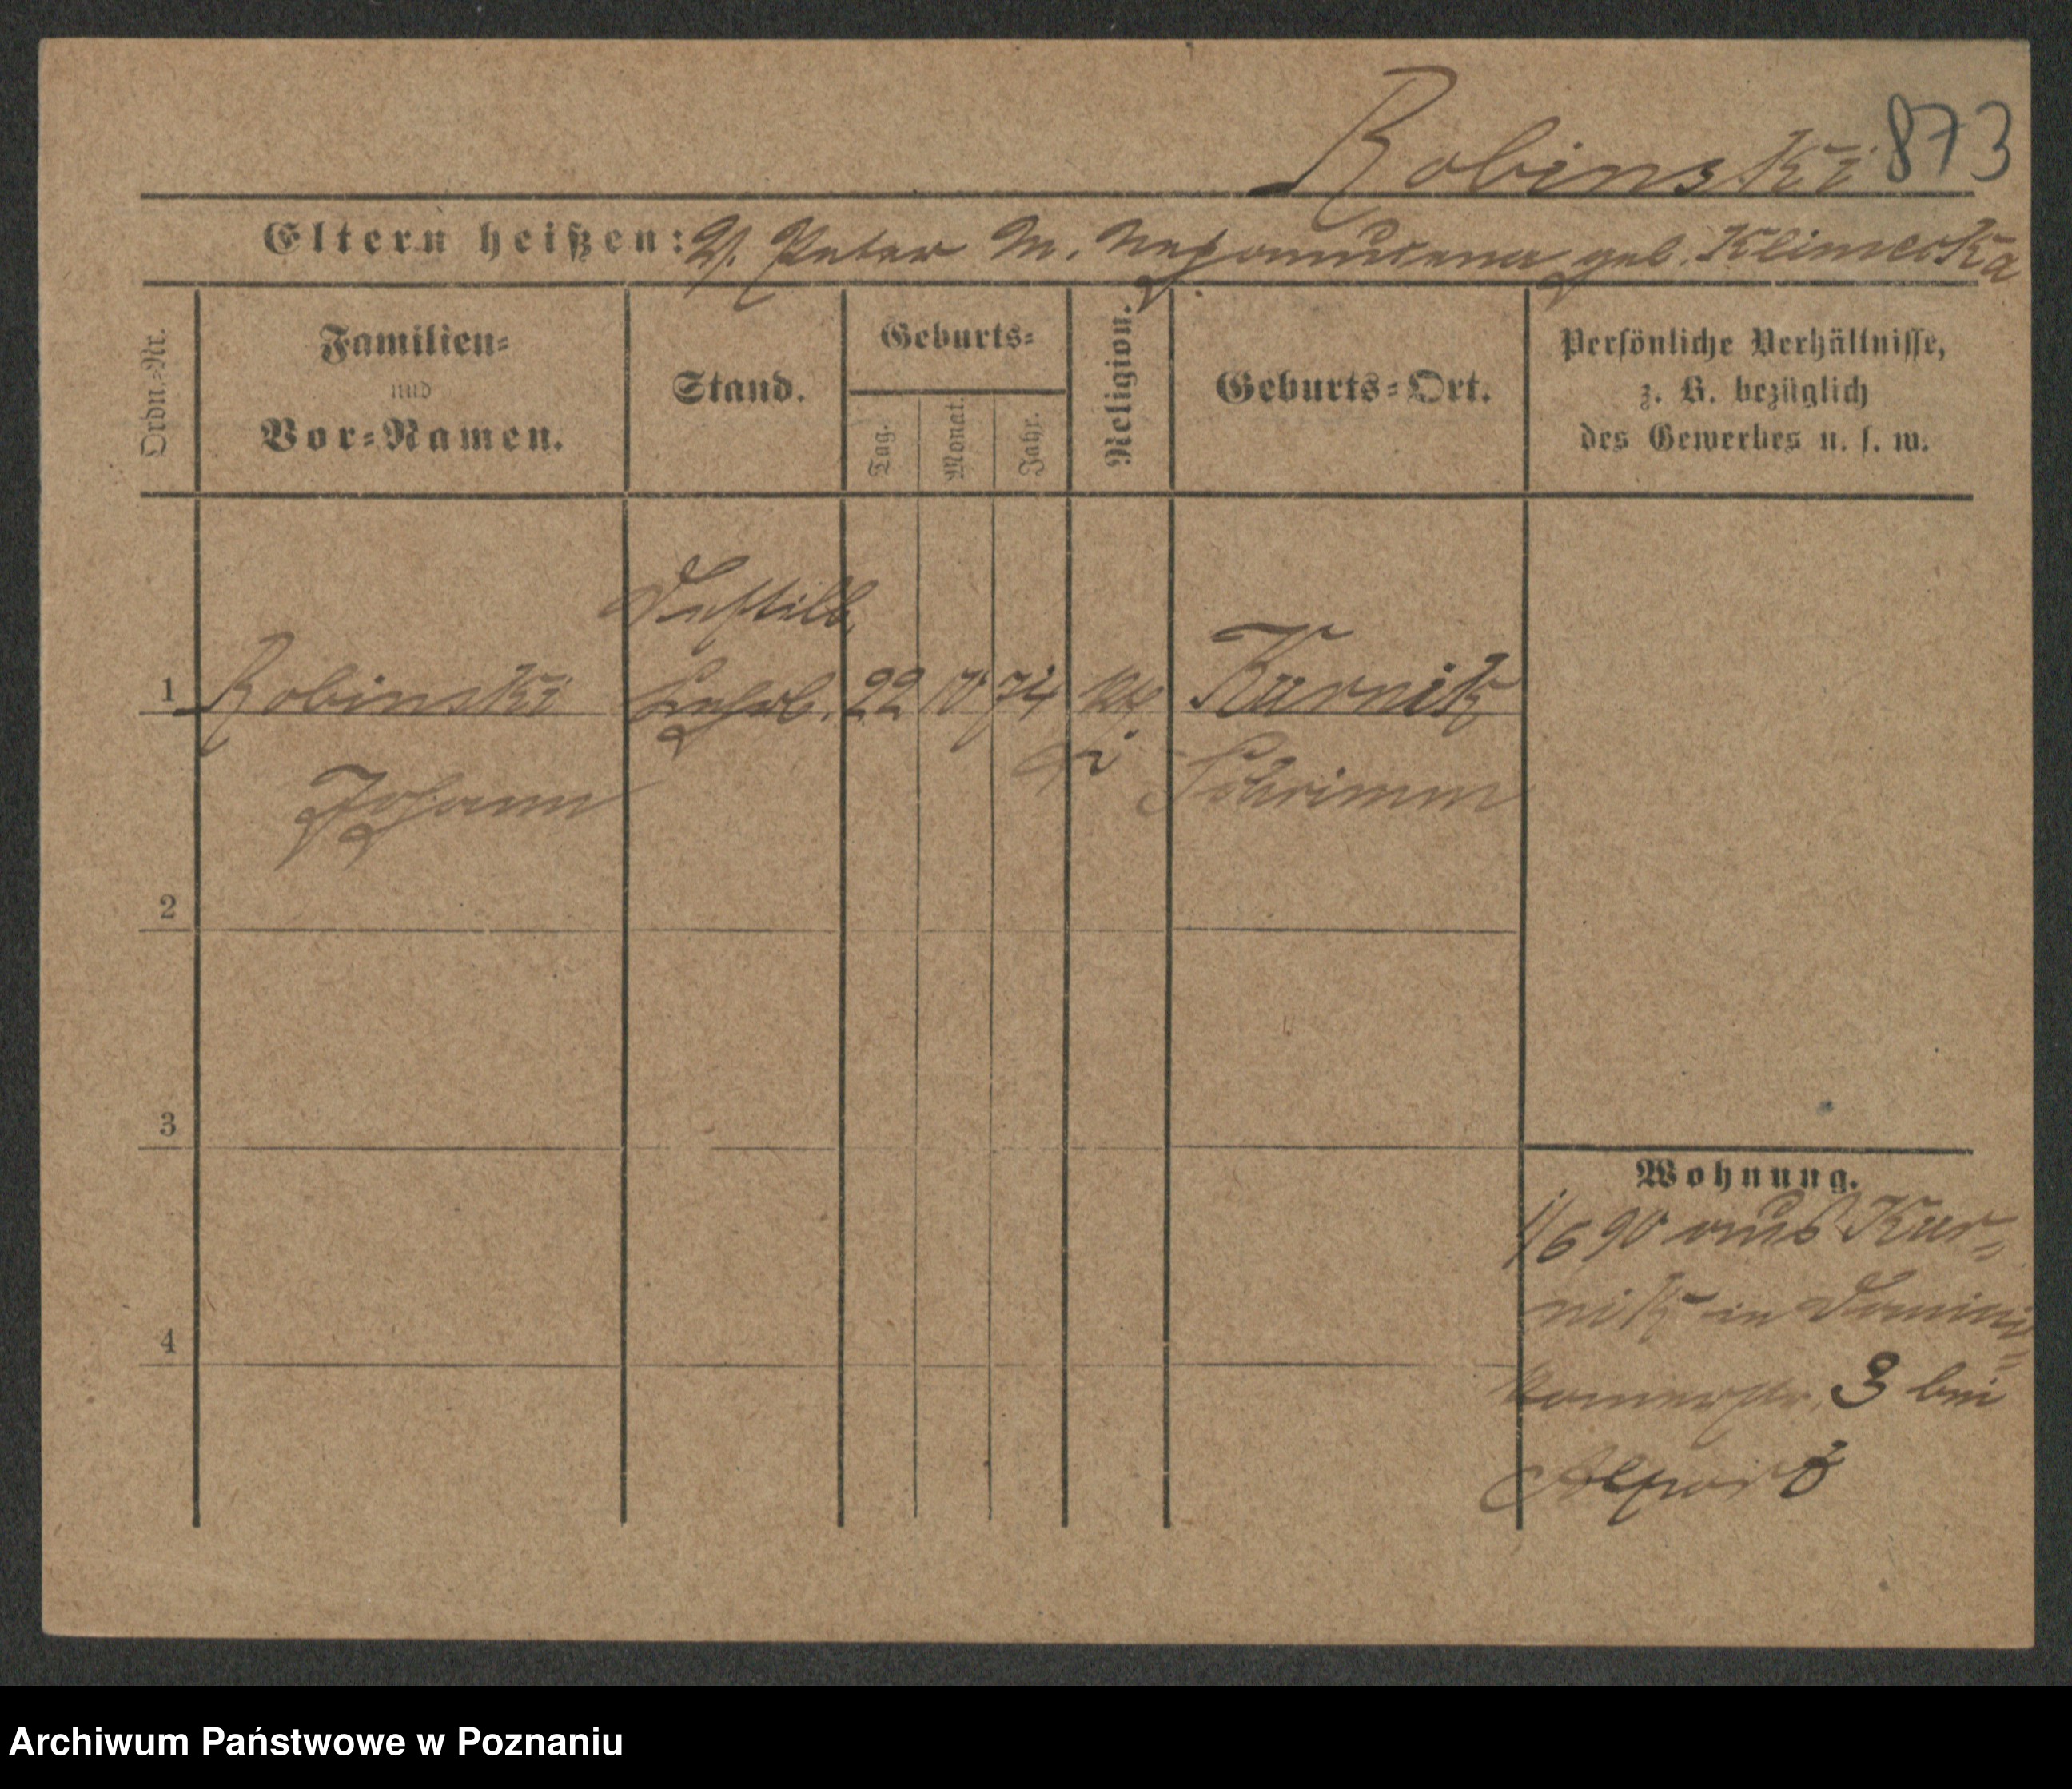 Robinski 873
Eltern heißen: V. Peter M. Nepomucena geb. Klimecka
Ordn.-Nr.
Familien-
und
Vor-Namen.
Stand.
Geburts-
Tag.
Monat.
Jahr.
Religion.
Geburts-Ort.
Persönliche Verhältnisse,
z. B. bezüglich
des Gewerbes u. s. w.
Destill.
1 Robinski Lehrl. 22 74 Kurnik
Johann Schrimm
2
3
4
Wohnung.
1/6 90 aus Kur-
nik in Domini-
kanerstr. 3 bei